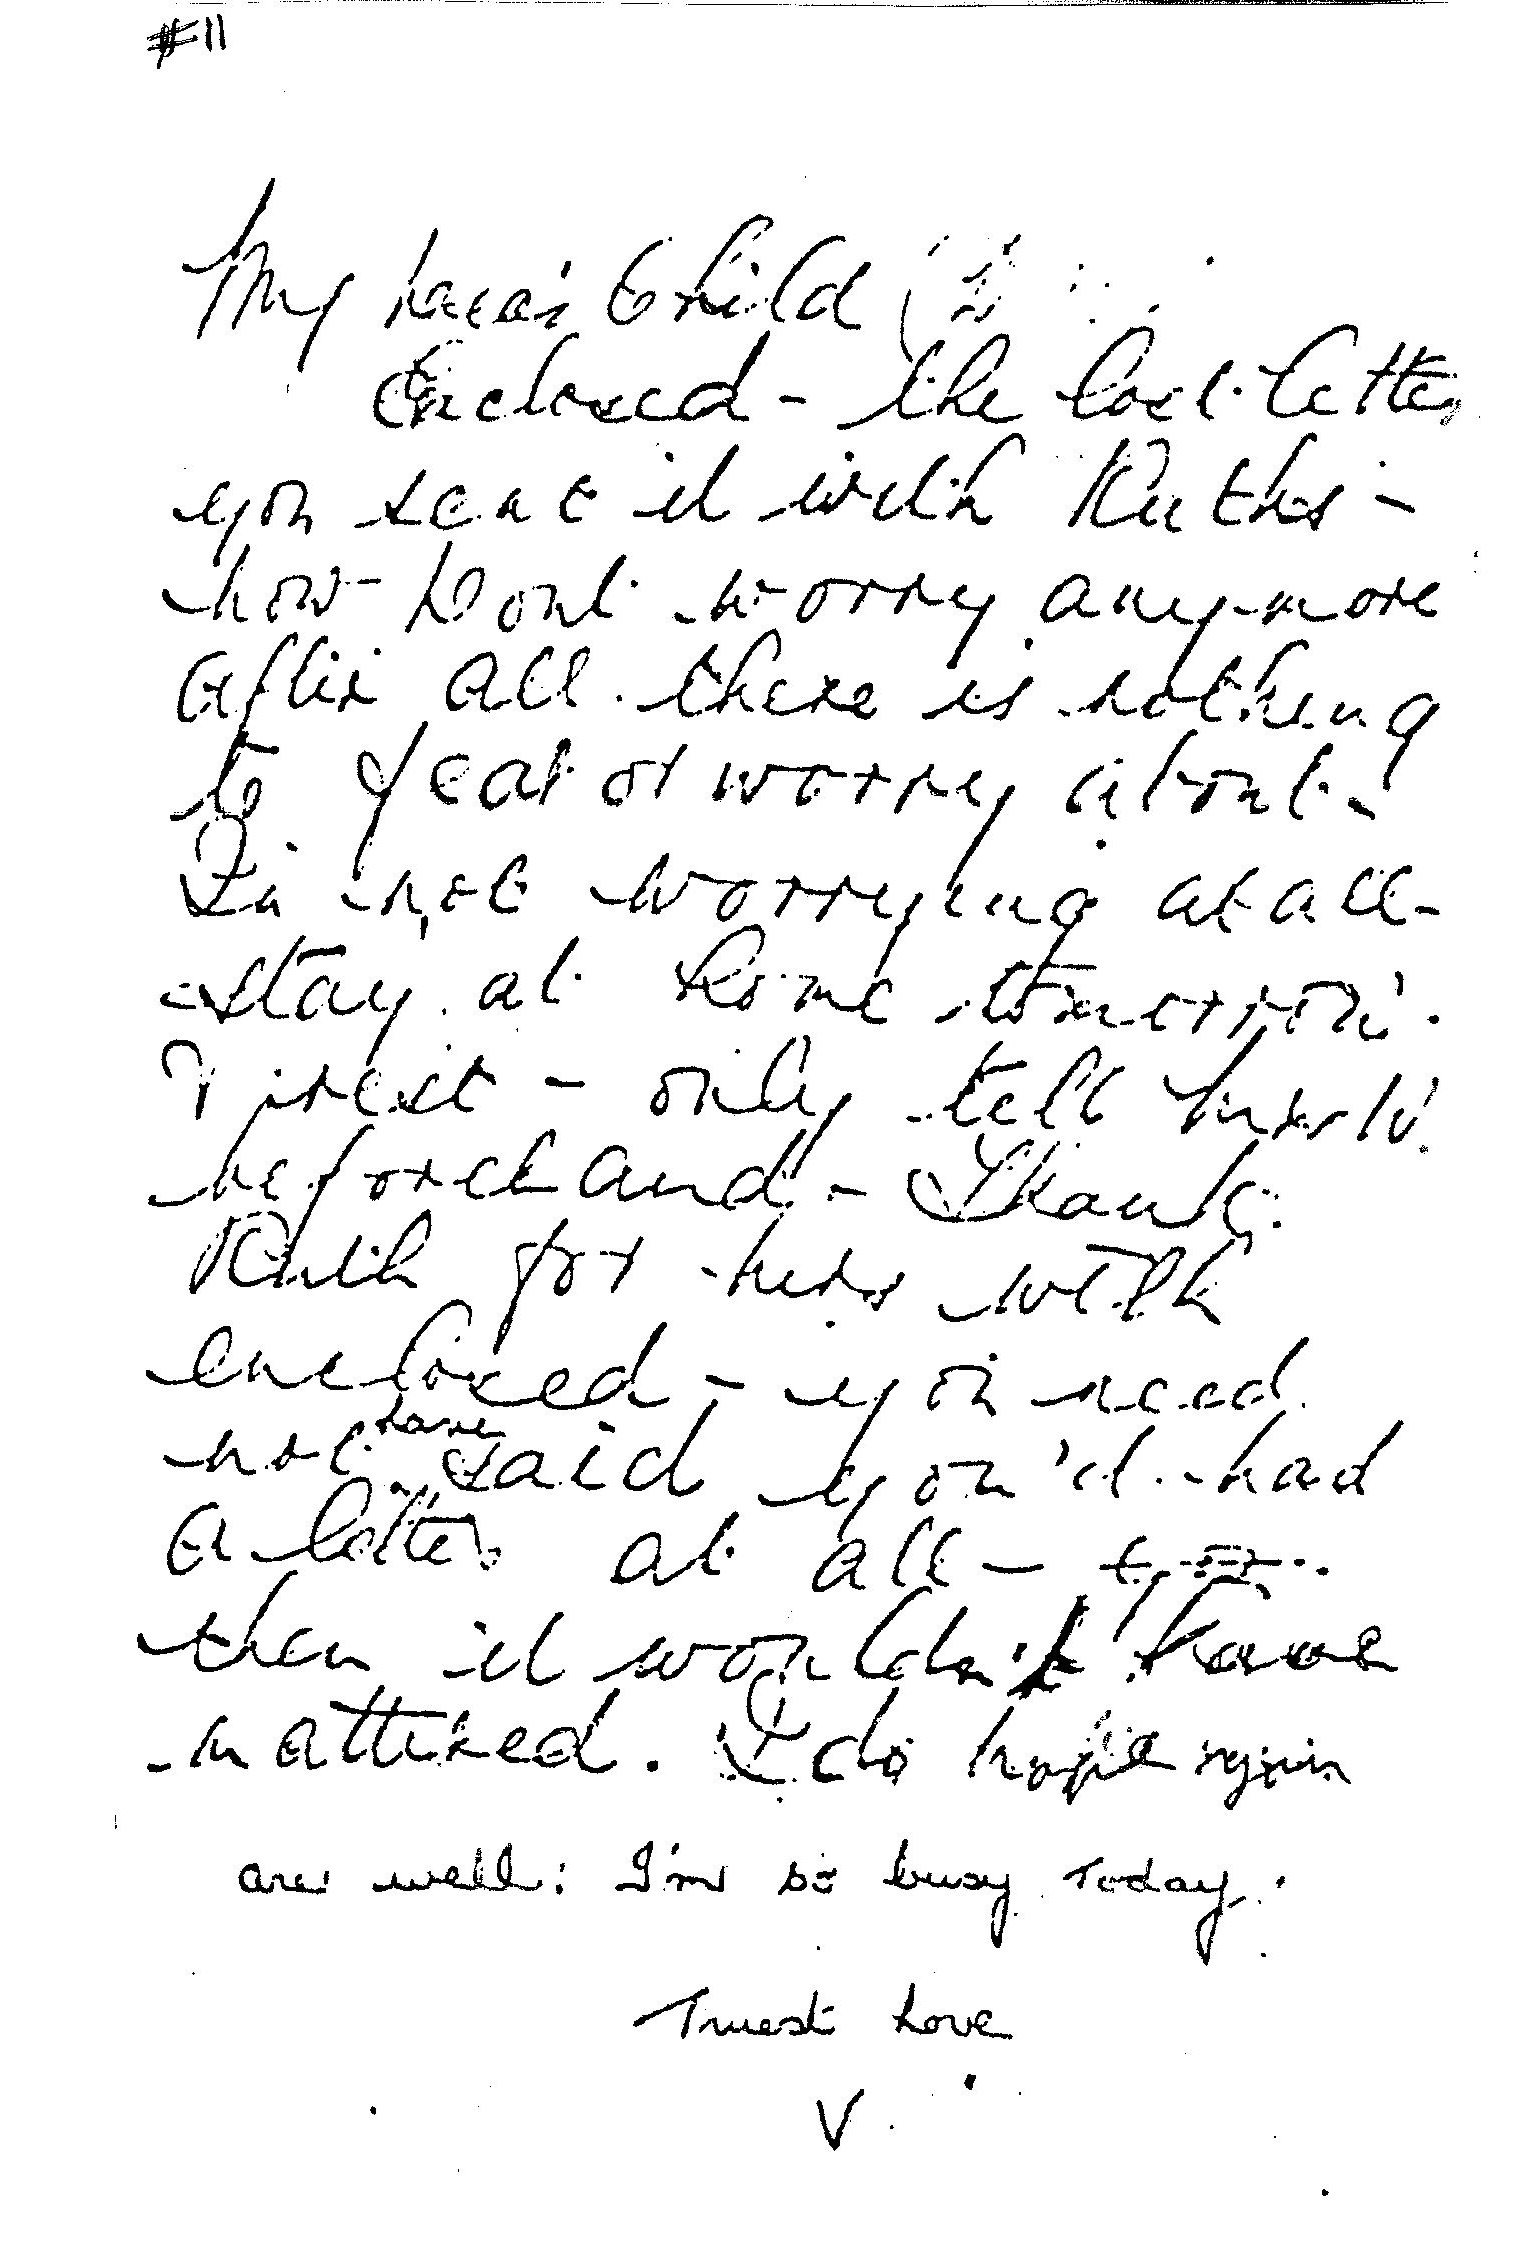 #11
My dear Child
Enclosed - the lost letter
you sent it with Ruths -
now dont worry anymore
after all there is nothing
to fear or worry about -
I'm not worrying at all -
stay at home tomorrow
& rest - only tell
beforehand - Thank
Ruth for hers with
enclosed - you need
not have said you'd had
a letter at all -
then it wouldn't have
mattered. I do hope you
are well: I'm so busy today.
Truest Love
V